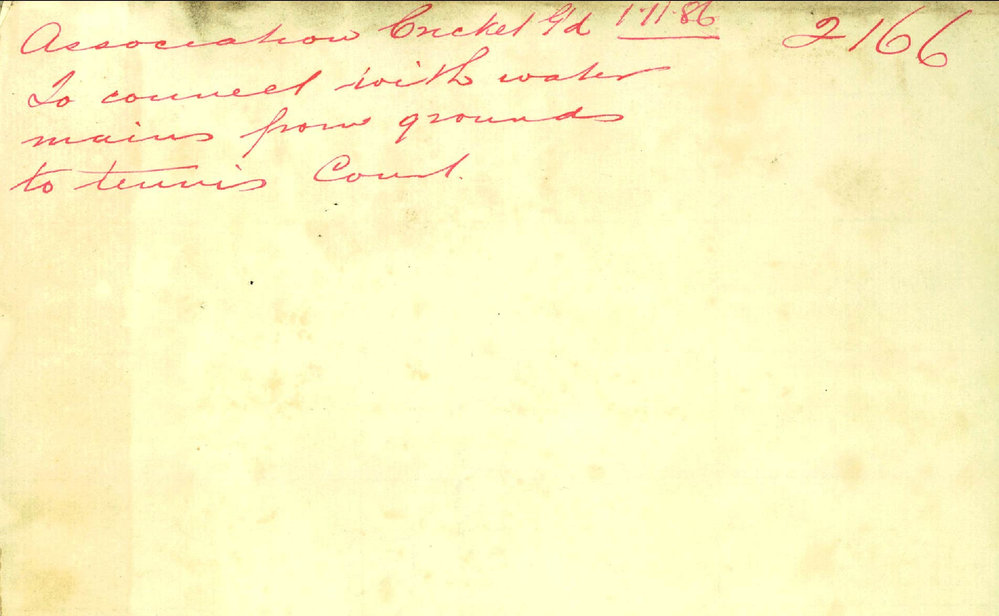 Association Cricket G/d 1·11·86 2166
To connect with water
mains from grounds
to tennis Court.